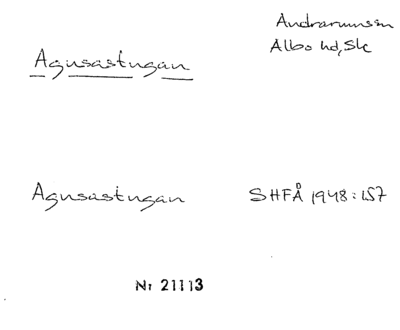 Andrarumssn
Albo hd, Sk
Agusastugan
Agusastugan SHFÅ 1948:157
Nr 21113